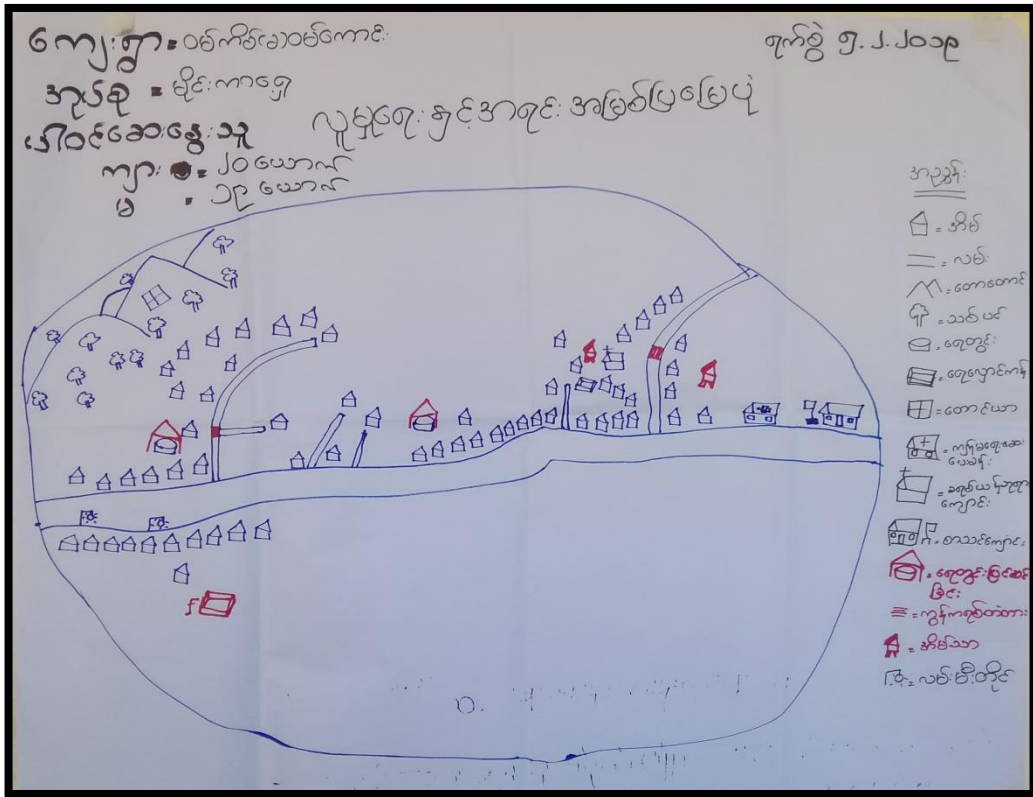 ကျေးရွာ = ဝမ်ကိတ်(ခ)ဝမ်ကောင်း
ရက်စွဲ ၅.၂.၂၀၁၉
အုပ်စု = မိုင်းကာရှေ
ပါဝင်ဆွေးနွေးသူ
လူမှုရေးနှင့်အရင်းအမြစ်ပြမြေပုံ
ကျား = ၂၀ ယောက်
မ = ၁၉ ယောက်
အညွှန်း
= အိမ်
= လမ်း
= တောတောင်
= သစ်ပင်
= ရေတွင်း
= ရေလှောင်ကန်
= တောင်ယာ
= ကျန်းမာရေးဆေးပေးခန်း
= ခရစ်ယာန်ဘုရားကျောင်း
= စာသင်ကျောင်း
= ရေတွင်းပြင်ဆင်ခြင်း
= ကွန်ကရစ်တံတား
= အိမ်သာ
= လမ်းမီးတိုင်